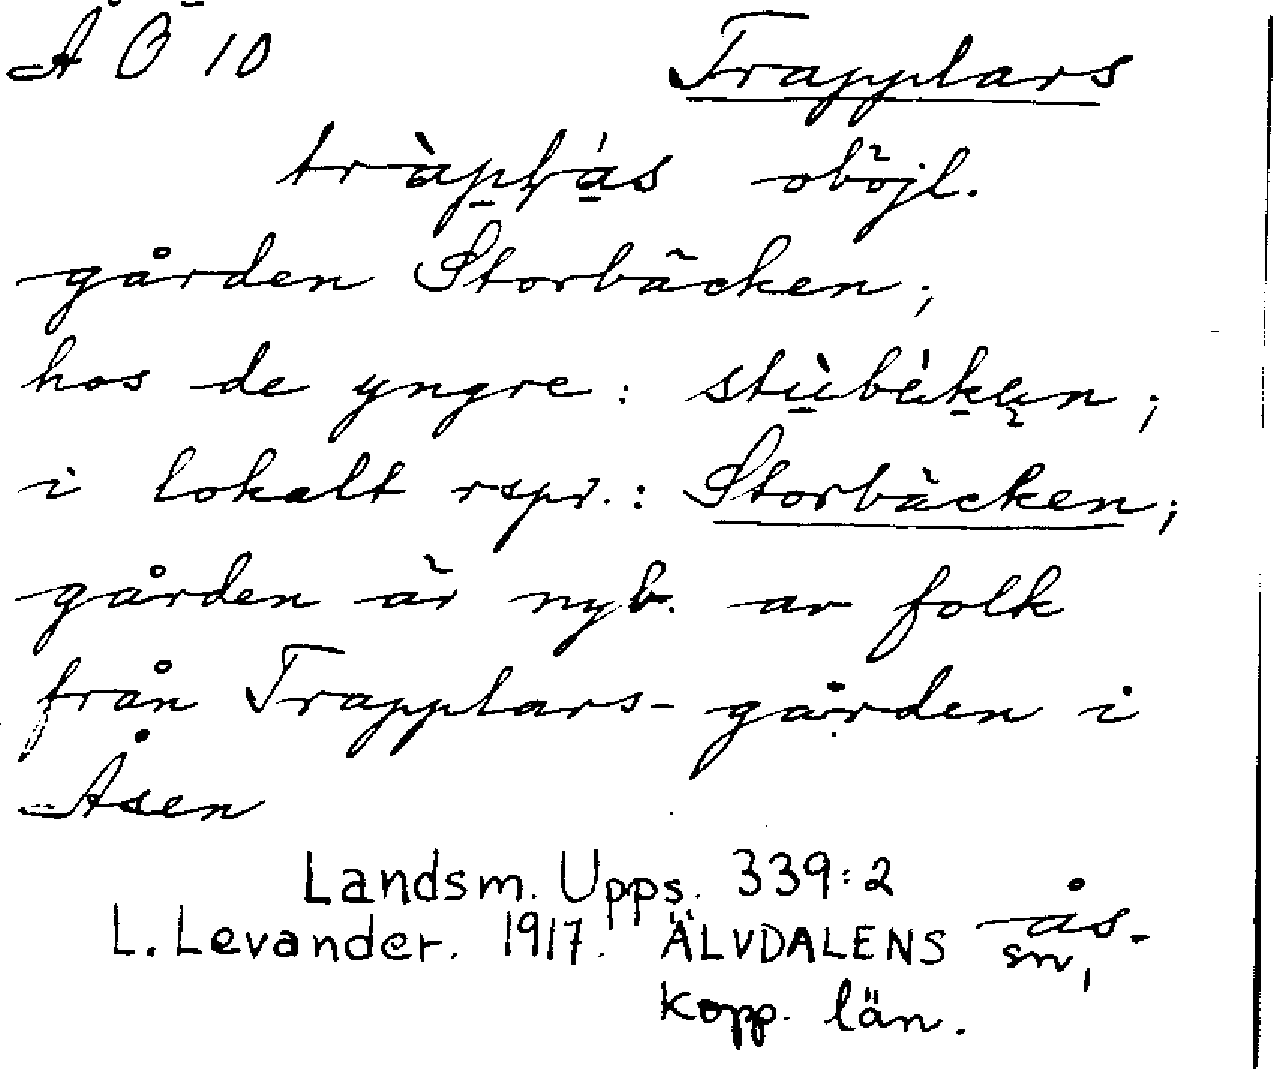 Å Ö 10 Trapplars
tràpḷás oböjl.
gården Storbäcken;
hos de yngre: stùbék̠en;
i lokalt rspr.: Storbäcken;
gården är nyb. av folk
från Trapplars-gården i
Åsen
Landsm. Upps. 339:2
L. Levander. 1917. ÄLVDALENS sn, ås.
Kopp. län.